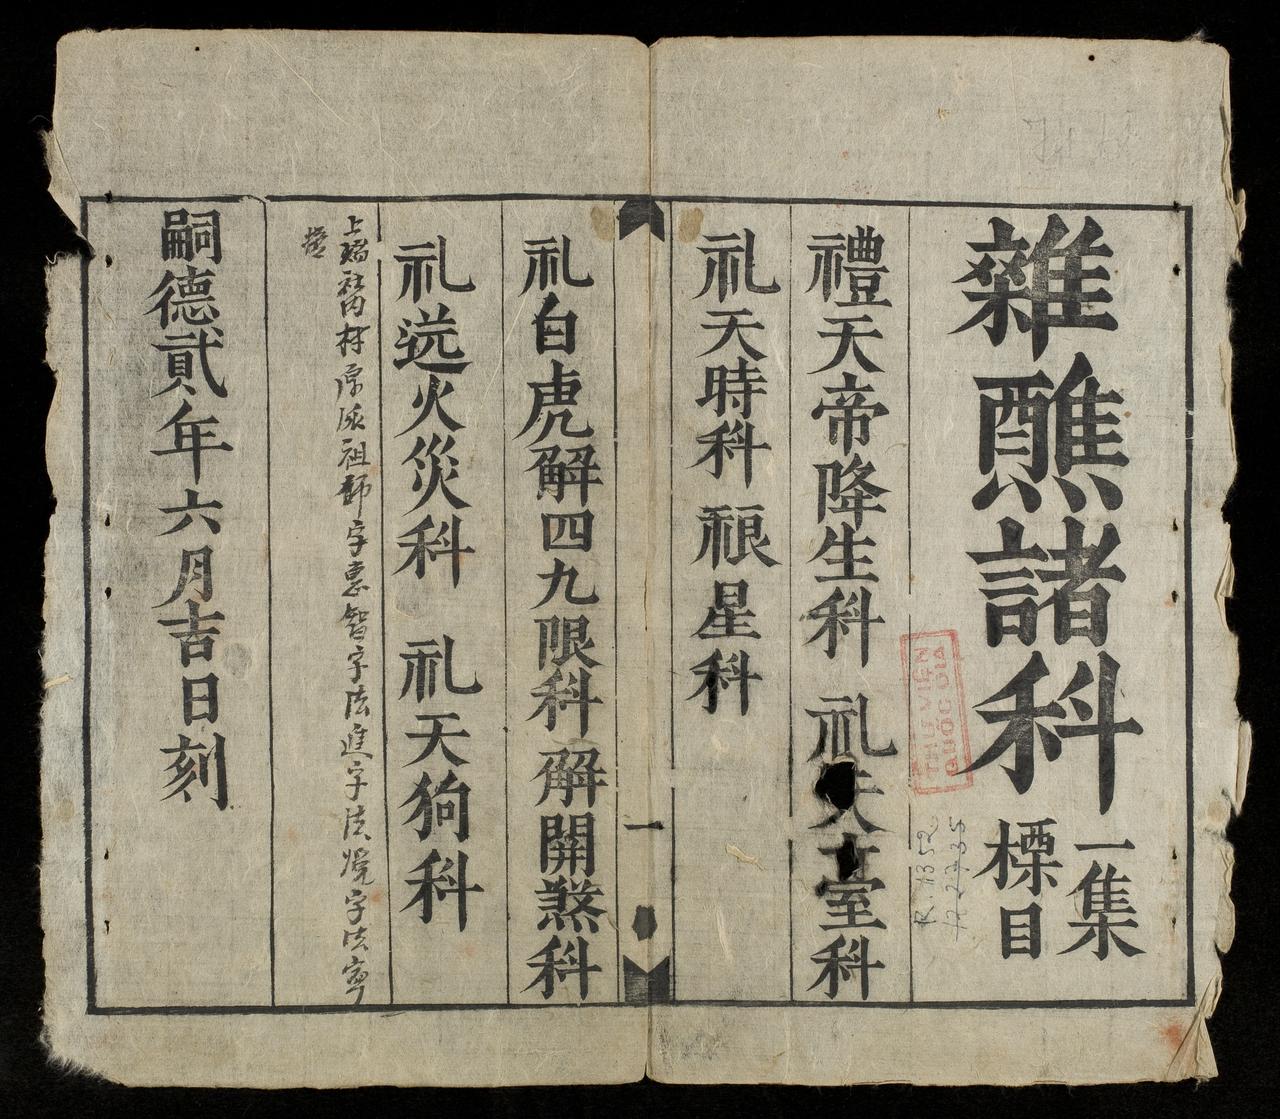 雜醮諸科
一集
標目
禮天帝降生科 礼天室科
礼天時科 裉星科
一
礼白虎解四九限科 解開煞科
礼送火災科 礼天狗科
上瑞社內村 祖師字惠智字法進字法 字法寧
嗣德貳年六月吉日刻
THƯ VIỆN
QUỐC GIA
R. 1352
R. 2235